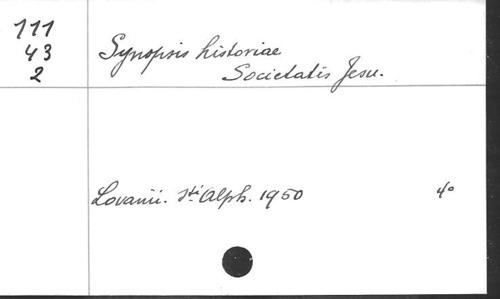 111
43
2
Synopsis historiae
Societatis Jesu.
Lovanii. Sti Alph. 1950 4o